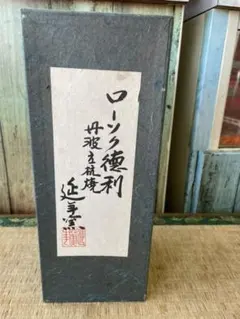 ローソク徳利
丹波立杭焼
延年窯